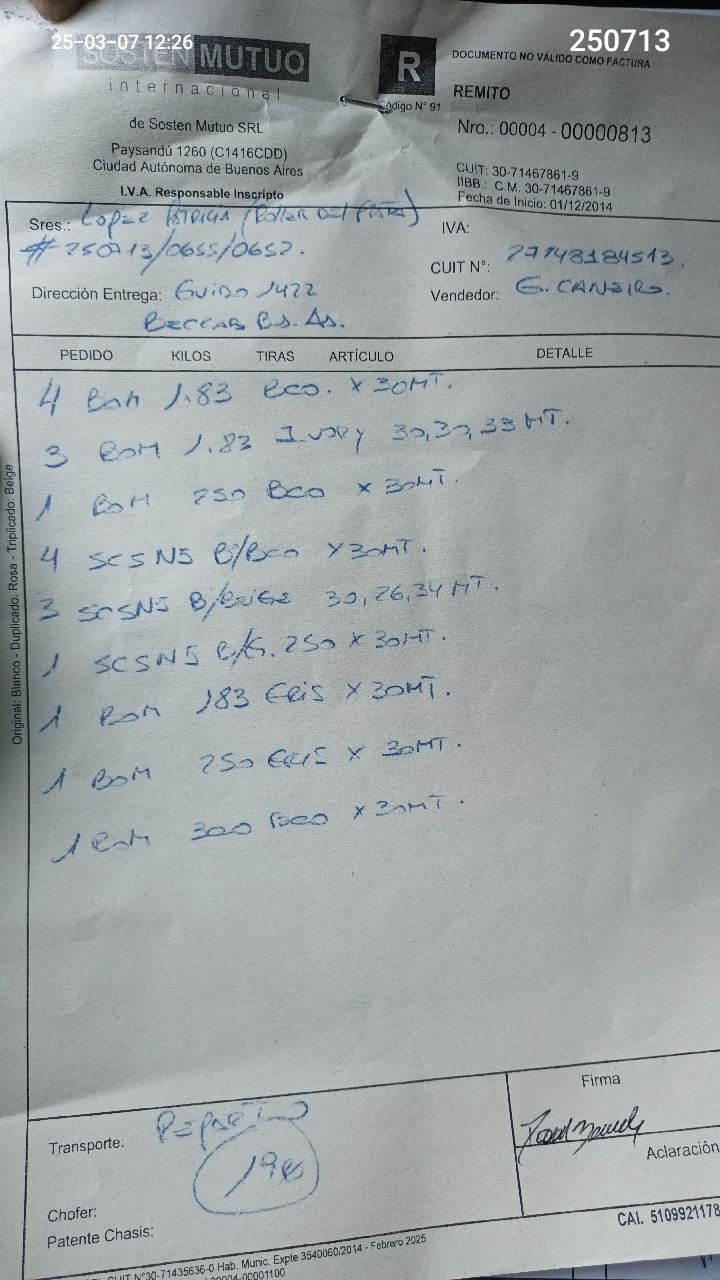 25-03-07 12:26
250713
SOSTEN MUTUO
internacional
de Sosten Mutuo SRL
Paysandú 1260 (C1416CDD)
Ciudad Autónoma de Buenos Aires
I.V.A. Responsable Inscripto
R
Código N° 91
DOCUMENTO NO VÁLIDO COMO FACTURA
REMITO
Nro.: 00004 - 00000813
CUIT: 30-71467861-9
IIBB.: C.M. 30-71467861-9
Fecha de Inicio: 01/12/2014
Sres.: Lopez Patricia (Roller Del Plata)
# 250713/0655/0652.
IVA:
CUIT N°: 27148184513.
Dirección Entrega: Guido 1422
Vendedor: G. CANEIRO.
Beccar Bs. As.
PEDIDO KILOS TIRAS ARTÍCULO DETALLE
4 BOM 1.83 BCO. X 30MT.
3 BOM 1.83 IVORY 30,30,33 MT.
1 BOM 250 BCO X 30MT.
4 SCSN5 B/BCO X 30MT.
3 SCSN5 B/BEIGE 30,26,34 MT.
1 SCSN5 B/G. 250 X 30MT.
1 BOM 183 GRIS X 30MT.
1 BOM 250 GRIS X 30MT.
1 BOM 300 BCO X 30MT.
Original: Blanco - Duplicado: Rosa - Triplicado: Beige
Transporte: REPARTO
Chofer:
Patente Chasis:
Firma
Aclaración
CAI. 5109921178
CUIT N°30-71435636-0 Hab. Munic. Expte 3540060/2014 - Febrero 2025
00004-00001100